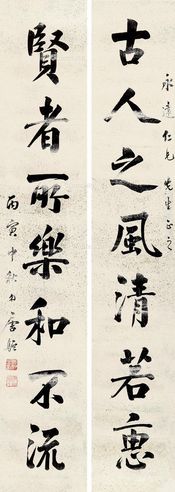 永達仁兄先生正之
古人之風清若惠
賢者所樂和不流
丙寅中秋